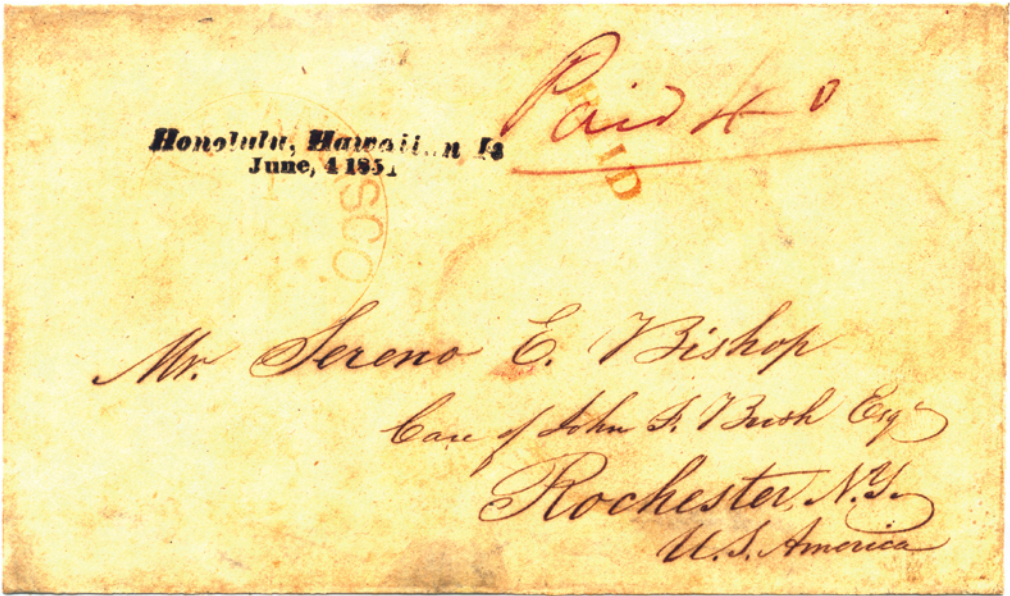 Paid 40
PAID
Honolulu, Hawaiian Is
June, 4 1851
SCO
Mr. Sereno E. Bishop
Care of John F. Bush Esqr
Rochester, N.Y.
U.S. America